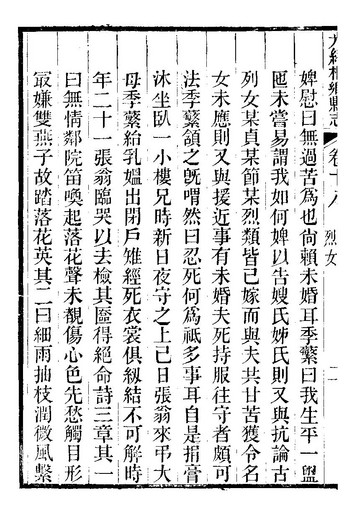 鄉縣志 卷十八 烈女 二
婢慰曰無過苦爲也尙賴未婚耳季蘩曰我生平一盥
匜未嘗易謂我如何婢以告嫂氏姊氏則又與抗論古
列女某貞某節某烈類皆已嫁而與夫共甘苦獲令名
女未應則又與援近事有未婚夫死持服往守者頗可
法季蘩頷之旣喟然曰忍死何爲祗多事耳自是捐膏
沐坐臥一小樓兄時新日夜守之上巳日張翁來弔大
母季蘩給乳媼出閉戶雉經死衣裳俱紉結不可解時
年二十一張翁臨哭以去檢其匳得絕命詩三章其一
曰無情鄰院笛喚起落花聲未覩傷心色先愁觸目形
最嫌雙燕子故踏落花英其二曰細雨抽枝潤微風繫